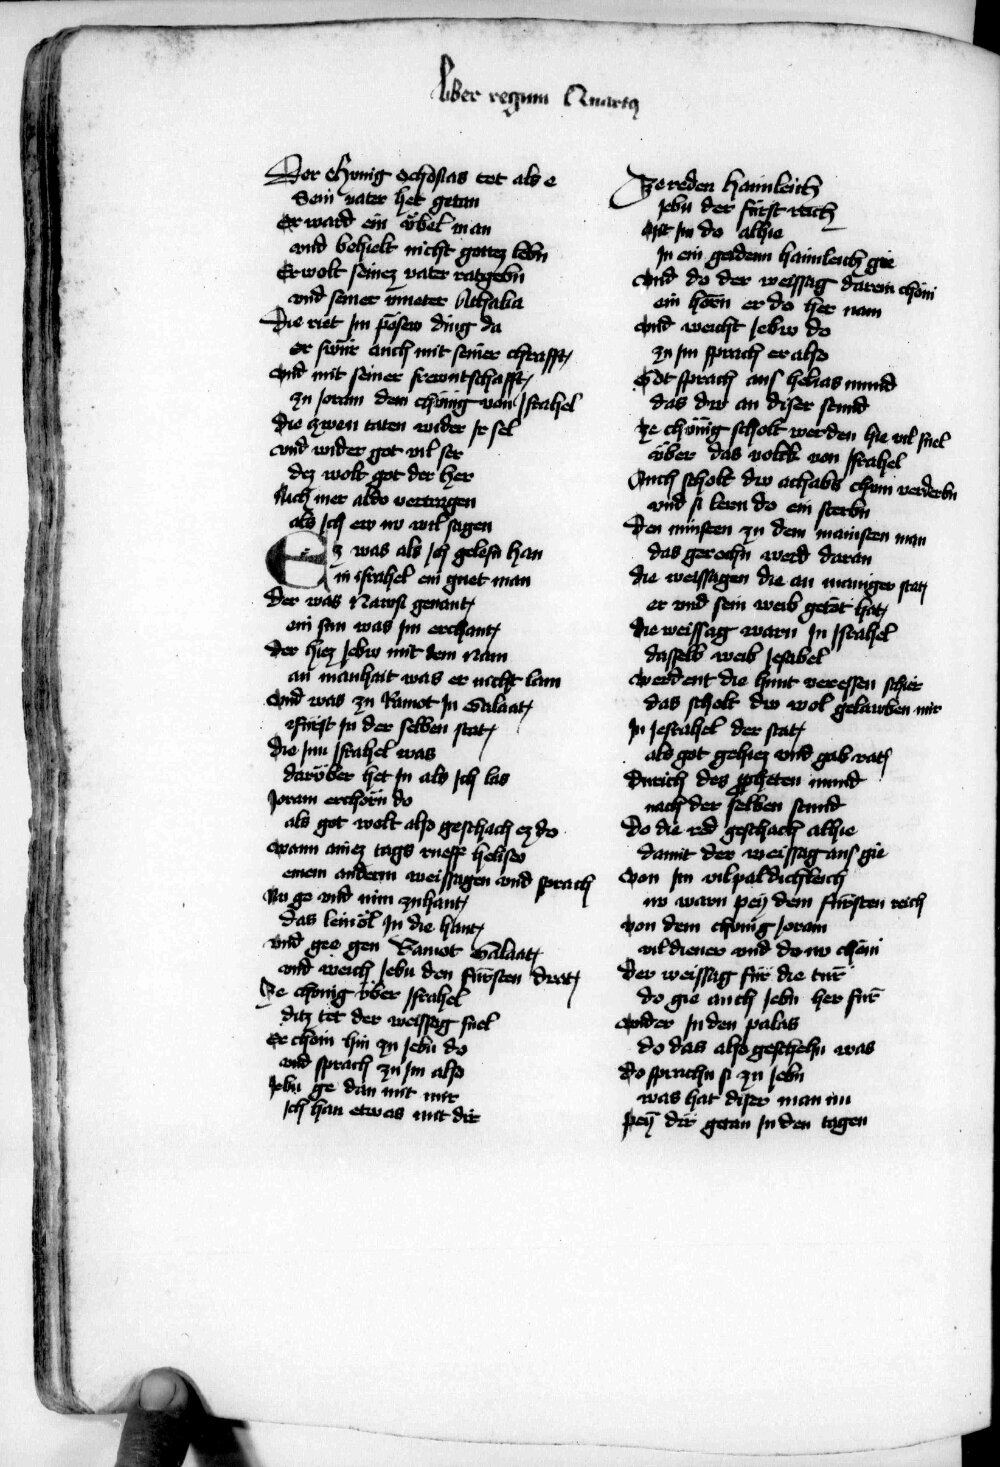 Liber regum Quartus
Der chonig Ochosias tet als e
Sein vater het getan
Er ward ein vbel man
vnd behielt nicht gottez lebn
Er wolt seinez vater ratgebn
vnd seiner muter Athalia
Die riet im posew ding da
er swur auch mit seiner chrafft
vnd mit seiner frewntschafft
zu Joram dem chonig von Israhel
die zwen taten wider Ir sel
vnd wider got vil ser
dez wolt got der her
Nich mer aldo vertragen
als ich ew nv wil sagen
Ez was als ich gelesn han
in israhel ein guet man
Der was Namsi genant
ein sun was im erchant
Der hiez Jehw mit dem Nam
an manhait was er nicht lam
vnd was zu Ramot In Galaat
Fürst In der selben stat
die inn Israhel was
darüber het In als ich las
Joram erchorn do
als got wolt also geschach ez do
wann ainez tags rueff heliseo
einem anderm weissagen vnd sprach
Nu ge vnd nim zuhant
das lein öl In die hant
vnd gee gen Ramot Galaat
vnd weich Jehu den fürsten drat
Ze chonig vber Israhel
ditz tet der weissag snel
Er chom hin zu Jehu do
vnd sprach zu im also
Jehu ge dan mit mir
Ich han etwas mit dir
Ze reden haimleich
Jehu der fürst reich
im do alhie
In ein gademm haimleich gie
vnd do der weissag darein chom
ein horn er do her nam
vnd weicht Jehw do
zu im sprach er also
Got sprach aus helias mund
das dw an diser stund
ze chonig scholt werden hie vil snel
vber das volck von Israhel
Auch scholt dw achabs chom verderbn
vnd si lern do ein sterbn
Den minsten zu dem maisten man
das gerochn werd daran
die weissagen die an maniger stat
er vnd sein weib getöt hat
die weissag warn In Israhel
dasselb weib Jesabel
werdent die hunt veressen schir
das scholt dw wol gelawben mir
In Jesrahel der stat
als got gehiez vnd gab rat
durich des propheten mund
nach der selben stund
Do die red geschach alhie
damit der weissag aus gie
von im vil paldichleich
nv warn pey dem fürsten reich
von dem chonig Joram
vil diener vnd do nv chom
der weissag für die tür
do gie auch Jehu her für
wider In den palas
do das also geschehn was
do sprachn si zu Jehu
was hat diser man nu
pey dir getan In den tagen